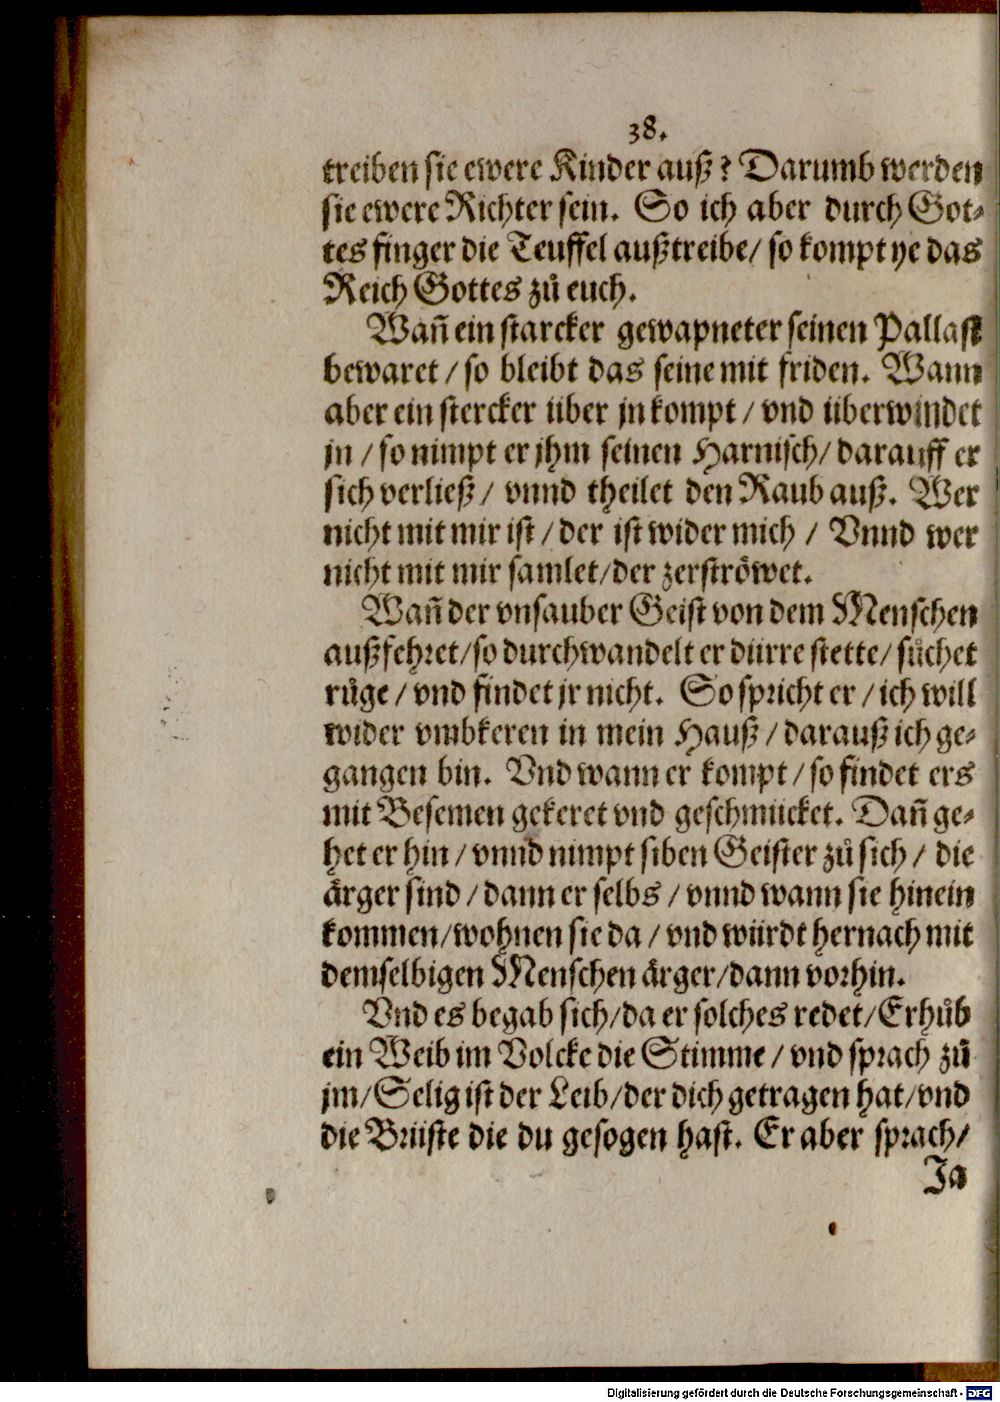 38.
treiben sie ewere Kinder auß? Darumb werden
sie ewere Richter sein. So ich aber durch Got-
tes finger die Teuffel außtreibe/ so kompt ye das
Reich Gottes zů euch.
Wañ ein starcker gewapneter seinen Pallast
bewaret/ so bleibt das seine mit friden. Wann
aber ein stercker über jn kompt/ vnd überwindet
jn/ so nimpt er jhm seinen Harnisch/ darauff er
sich verließ/ vnnd theilet den Raub auß. Wer
nicht mit mir ist/ der ist wider mich/ Vnnd wer
nicht mit mir samlet/ der zerströwet.
Wañ der vnsauber Geist von dem Menschen
außfehret/ so durchwandelt er dürre stette/ sůchet
růge/ vnd findet jr nicht. So spricht er/ ich will
wider vmbkeren in mein Hauß/ darauß ich ge-
gangen bin. Vnd wann er kompt/ so findet ers
mit Besemen gekeret vnd geschmücket. Dañ ge-
het er hin/ vnnd nimpt siben Geister zů sich/ die
ärger sind/ dann er selbs/ vnnd wann sie hinein
kommen/ wohnen sie da/ vnd würdt hernach mit
demselbigen Menschen ärger/ dann vorhin.
Vnd es begab sich/ da er solches redet/ Erhůb
ein Weib im Volcke die Stimme/ vnd sprach zů
jm/ Selig ist der Leib/ der dich getragen hat/ vnd
die Brüste die du gesogen hast. Er aber sprach/
Ja
Digitalisierung gefördert durch die Deutsche Forschungsgemeinschaft - DFG